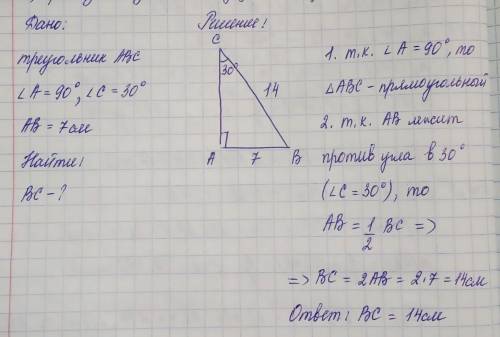 Дано:
треугольник ABC
∠A = 90°, ∠C = 30°
AB = 7см
Найти:
BC - ?
Решение:
C
30°
14
A
7
B
1. т.к. ∠A = 90°, то
△ABC - прямоугольный
2. т.к. AB лежит
против угла в 30°
(∠C = 30°), то
AB = 1/2 BC =>
=> BC = 2AB = 2·7 = 14см
Ответ: BC = 14см